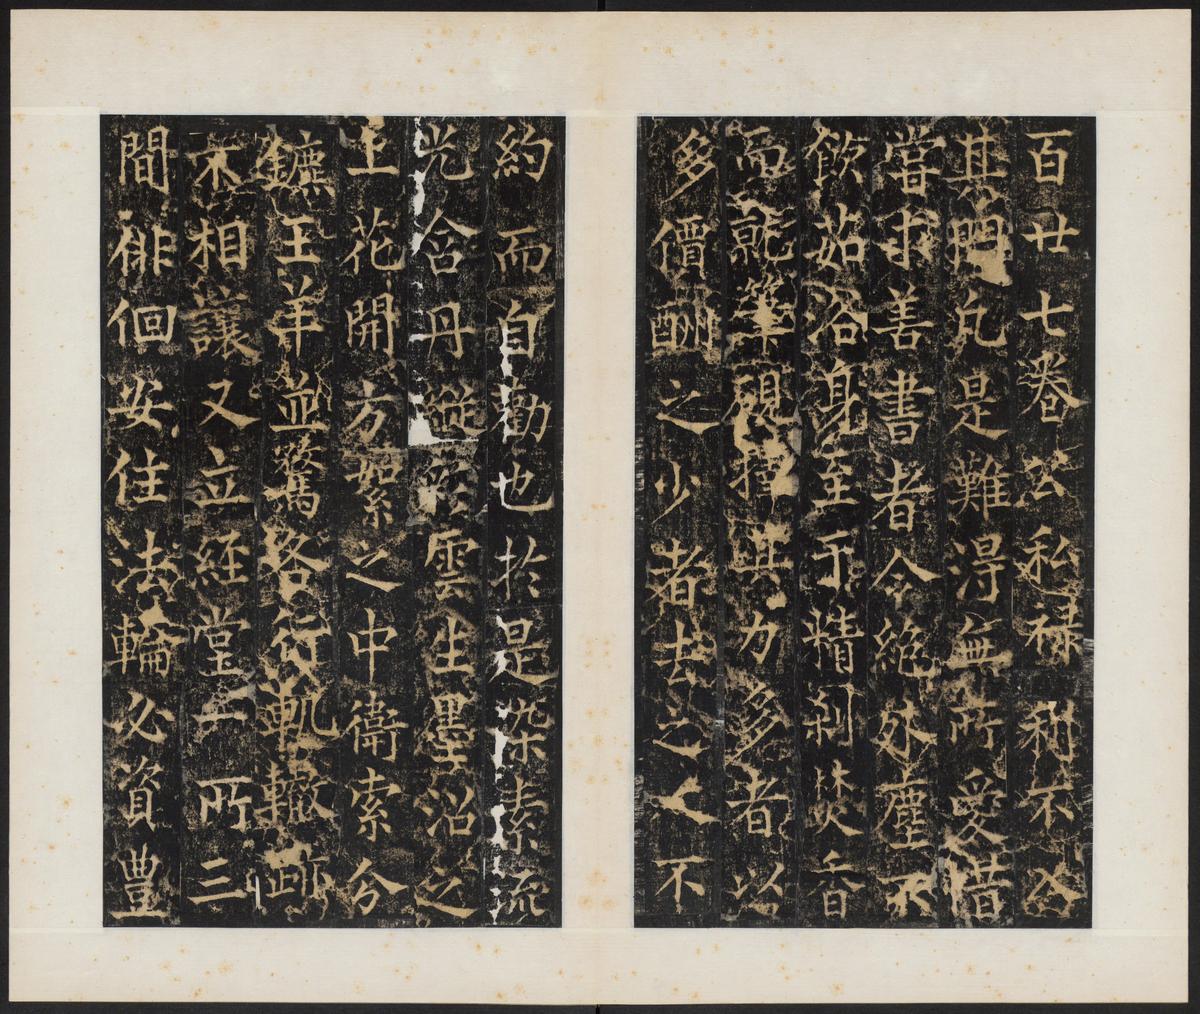 百廿七卷公私祿利不入
其門凡是難淂無所愛惜
嘗求善書者令絕外塵不
飲茹浴身至于精剎焚香
而就筆硯擅其力多者以
多價酬之少者去之人不
約而自勸也於是染素流
光含丹縱彩雲生墨沼之
上花開方絮之中衛索分
鑣王羊並騖各行軌轍跡
不相讓又立經堂一所三
間俳佪安住法輪必資豊